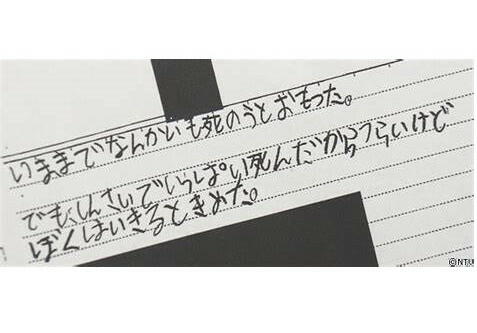 いままでなんかいも死のうとおもった。
でも、しんさいでいっぱい死んだからつらいけど
ぼくはいきるときめた。
©NTV